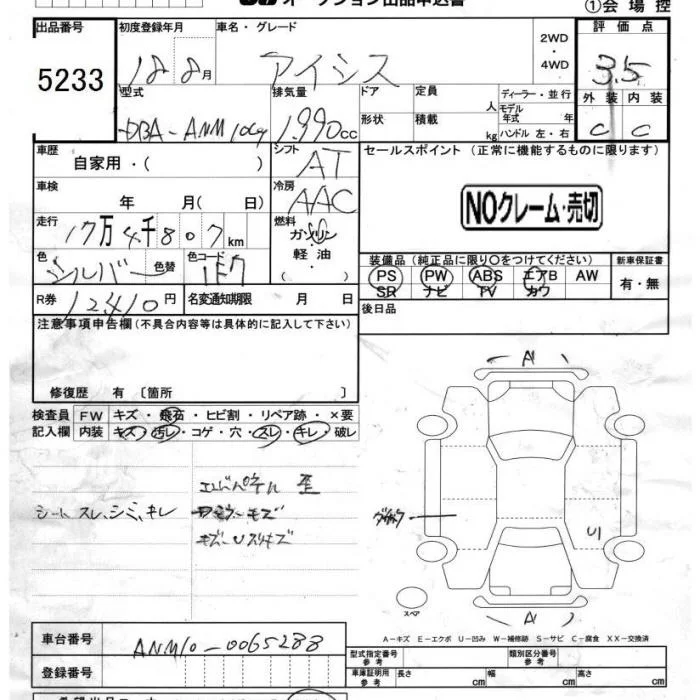 オークション出品申込書 ①会場控
出品番号 初度登録年月 車名・グレード 2WD・4WD 評価点
5233 18 8月 アイシス 3.5
型式 排気量 ドア 定員 人 ディーラー・並行 外装 内装
DBA-ANM10G 1,990cc 形状 積載 kg モデル年式 年 ハンドル 左・右 C C
車歴 自家用・( ) シフト AT セールスポイント (正常に機能するものに限ります)
車検 年 月(日) 冷房 AAC NOクレーム・売切
走行 17万4千807km 燃料 ガソリン 軽油 ( )
色 シルバー 色替 色コード 1F7 装備品 (純正品に限り○をつけてください) 新車保証書
PS PW ABS エアB AW 有・無
SR ナビ TV カワ
R券 12410円 名変通知期限 月 日 後日品
注意事項申告欄 (不具合内容等は具体的に記入して下さい)
修復歴 有 〔箇所 〕
検査員 FW キズ・飛石・ヒビ割・リペア跡・×要
記入欄 内装 キズ・汚レ・コゲ・穴・スレ・キレ・破レ
シート スレ、シミ、キレ
歪
キズ
A1
U1
A1
スペア
A-キズ E-エクボ U-凹み W-補修跡 S-サビ C-腐食 XX-交換済
車台番号 ANM10-0065288 型式指定番号 参考 類別区分番号 参考
登録番号 車庫証明用 参考 長さ cm 幅 cm 高さ cm